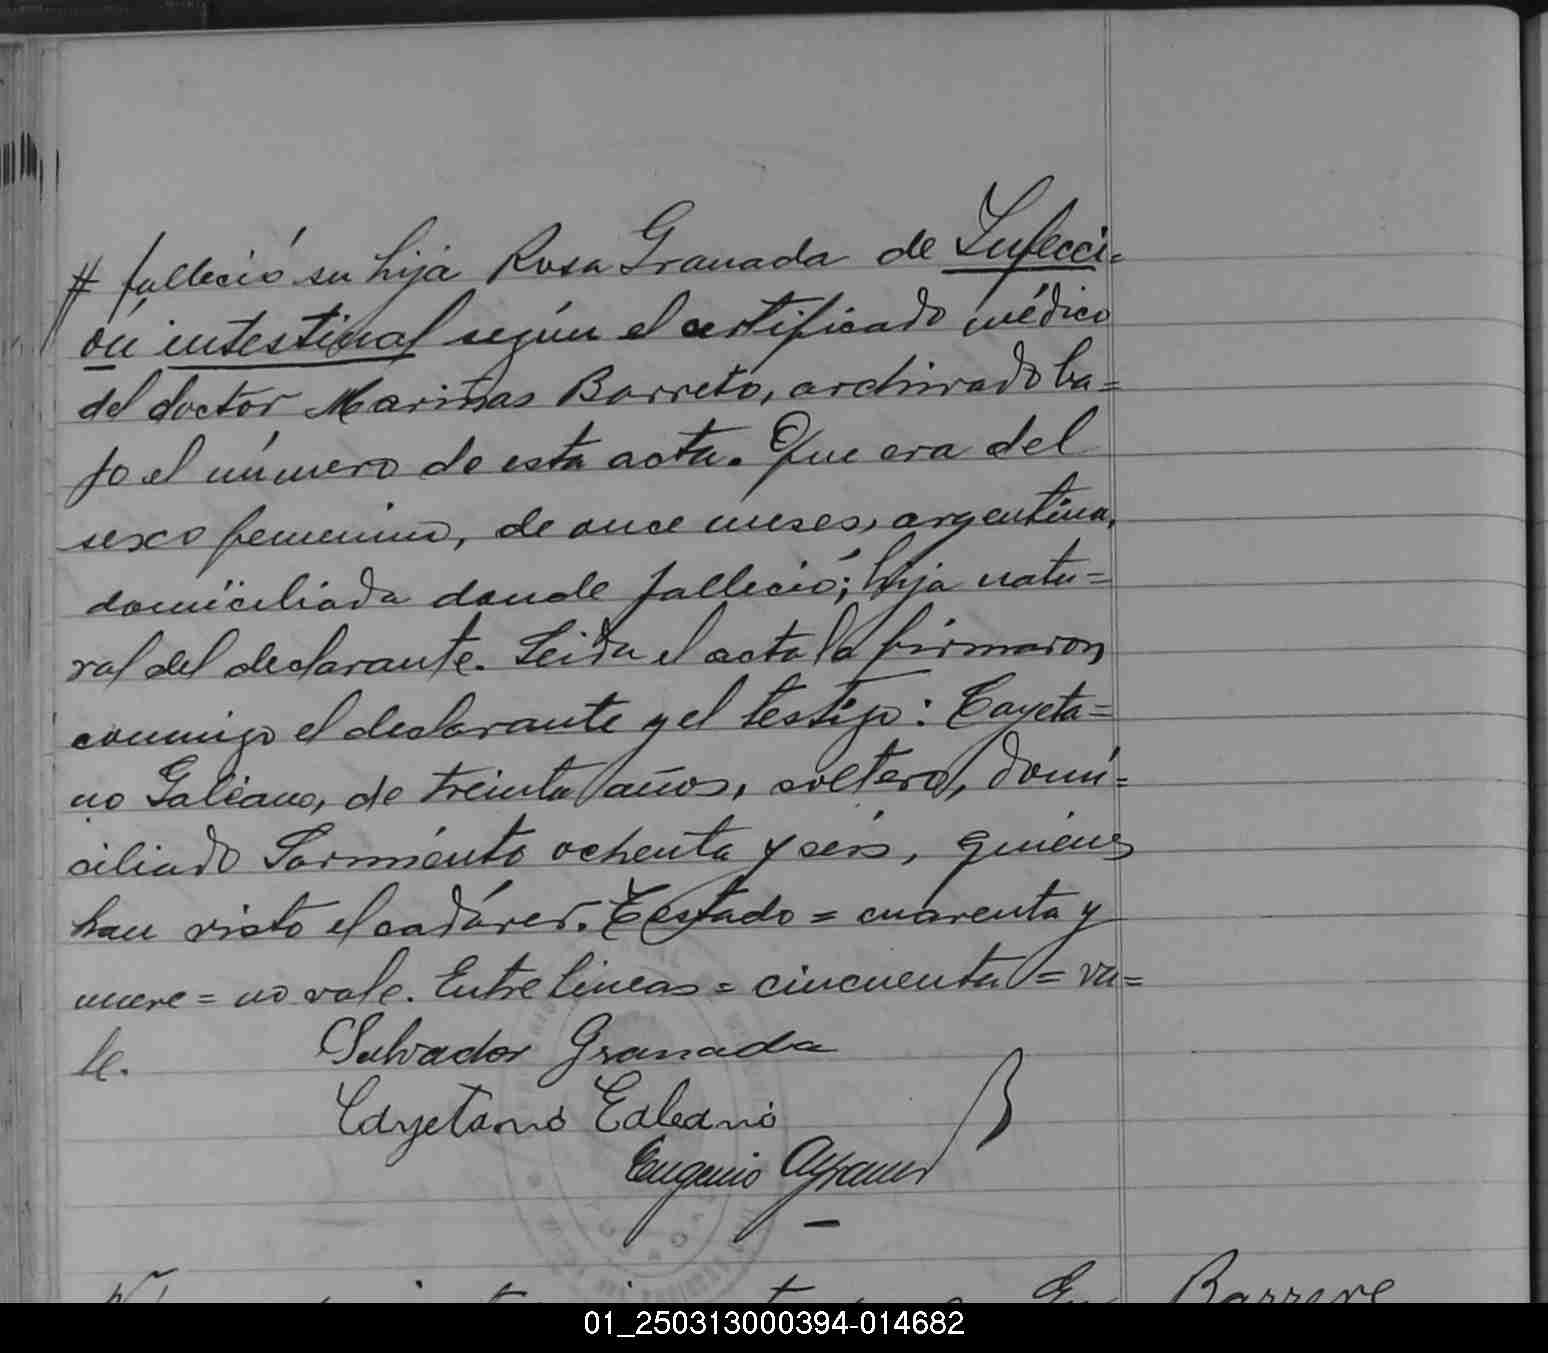 # falleció su hija Rosa Granada de Infecci-
ón intestinal según el certificado médico
del doctor Mariñas Barreto, archivado ba=
jo el número de esta acta. Que era del
sexo femenino, de once meses, argentina,
domiciliada donde falleció; hija natu=
ral del declarante. Leida el acta la firmaron
conmigo el declarante y el testigo: Cayeta=
no Galeano, de treinta años, soltero, domi=
ciliado Sarmiento ochenta y seis, quienes
han visto el cadáver. Testado = cuarenta y
nueve = no vale. Entre lineas = cincuenta = va=
le.
Salvador Granada
Cayetano Galeano
Eugenio
Barrere
01_250313000394-014682